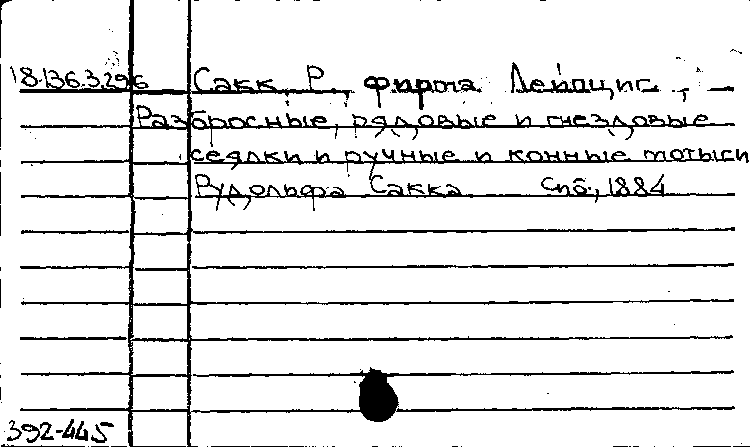 18.136.3.296 Сакк, Р., фирма. Лейпциг, –
Разбросные, рядовые и гнездовые
сеялки и ручные и конные мотыги
Рудольфа Сакка. Спб., 1884
392-445